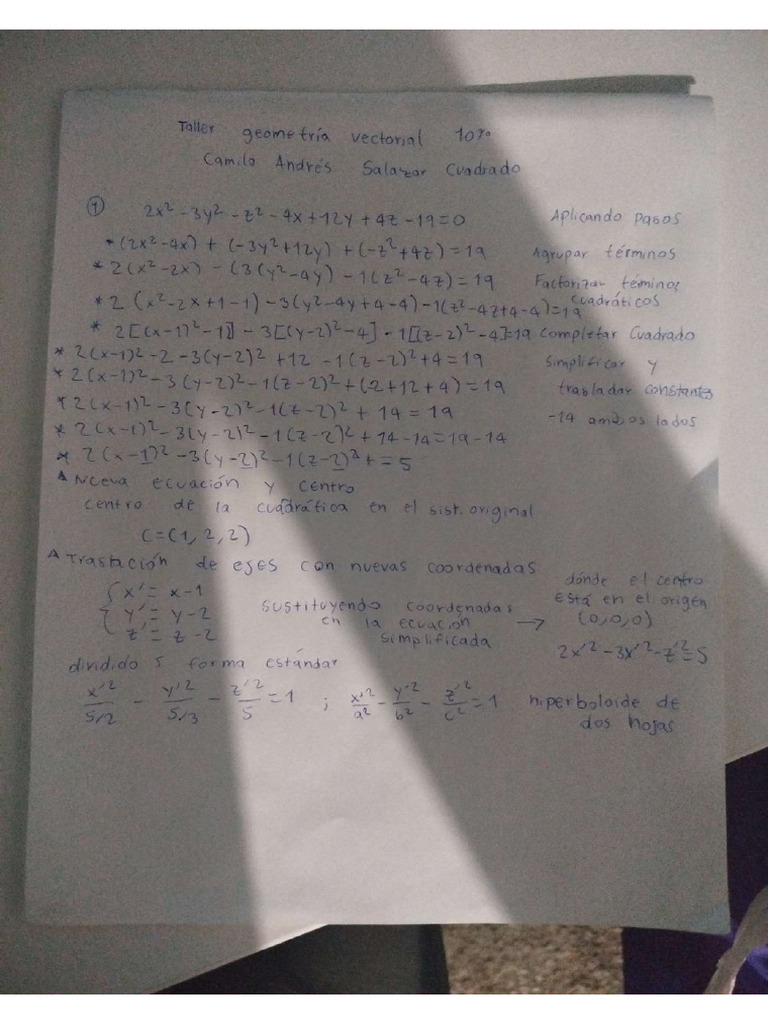 Taller geometría vectorial 10%
Camilo Andrés Salazar Cuadrado
① 2x² - 3y² - z² - 4x + 12y + 4z - 19 = 0 Aplicando pasos
* (2x² - 4x) + (-3y² + 12y) + (-z² + 4z) = 19 Agrupar términos
* 2(x² - 2x) - (3(y² - 4y) - 1(z² - 4z) = 19 Factorizar téminos cuadráticos
* 2 (x² - 2x + 1 - 1) - 3(y² - 4y + 4 - 4) - 1(z² - 4z + 4 - 4) = 19
* 2[(x-1)² - 1] - 3[(y-2)² - 4] - 1[(z-2)² - 4] = 19 completar cuadrado
* 2(x-1)² - 2 - 3(y-2)² + 12 - 1(z-2)² + 4 = 19 simplificar y
* 2(x-1)² - 3(y-2)² - 1(z-2)² + (-2 + 12 + 4) = 19 trasladar constantes
* 2(x-1)² - 3(y-2)² - 1(z-2)² + 14 = 19 -14 ambos lados
* 2(x-1)² - 3(y-2)² - 1(z-2)² + 14 - 14 = 19 - 14
* 2(x-1)² - 3(y-2)² - 1(z-2)² + = 5
▲ Nueva ecuación y centro
centro de la cuadrática en el sist. original
C = (1, 2, 2)
▲ Traslación de ejes con nuevas coordenadas
{ x' = x - 1
y' = y - 2
z' = z - 2
sustituyendo coordenadas
en la ecuación
simplificada →
dónde el centro
está en el origen
(0,0,0)
2x'² - 3x'² - z'² = 5
dividido 5 forma estándar
x'²/5/2 - y'²/5/3 - z'²/5 = 1 ; x'²/a² - y'²/b² - z'²/c² = 1 hiperboloide de
dos hojas